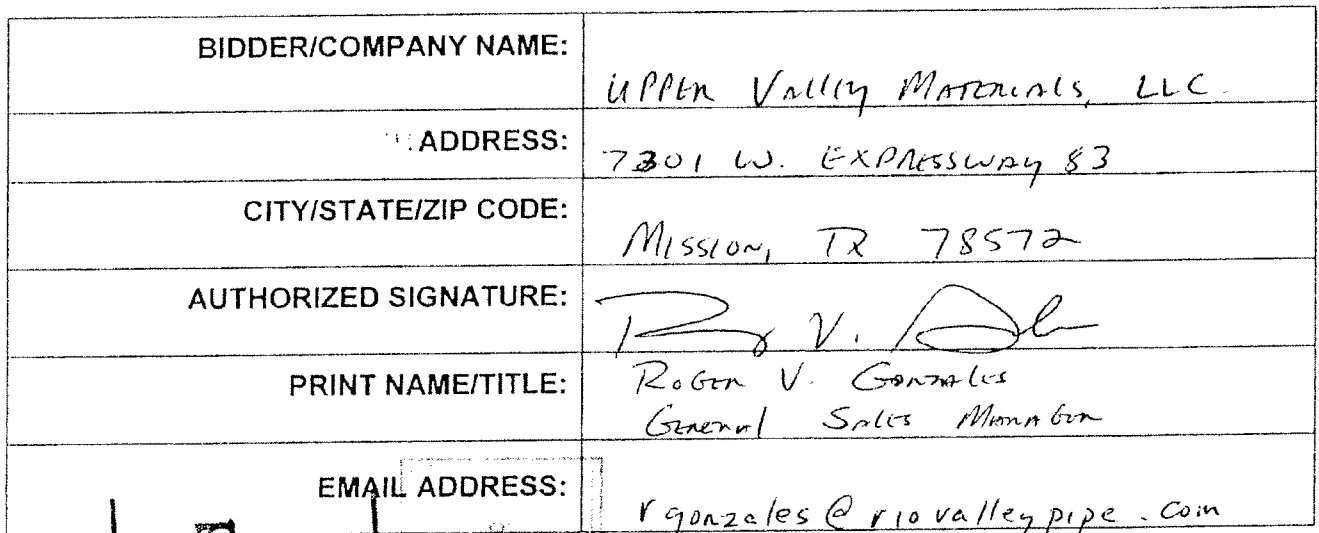 BIDDER/COMPANY NAME:
UPPER VAllEy MATERIALS, LLC.
ADDRESS:
7301 W. EXPRESSWAY 83
CITY/STATE/ZIP CODE:
MISSION, TX 78572
AUTHORIZED SIGNATURE:
V.
PRINT NAME/TITLE:
ROGER V. GONZALES
GENERAL SALES MANAGER
EMAIL ADDRESS:
rgonzales@riovalleypipe.com